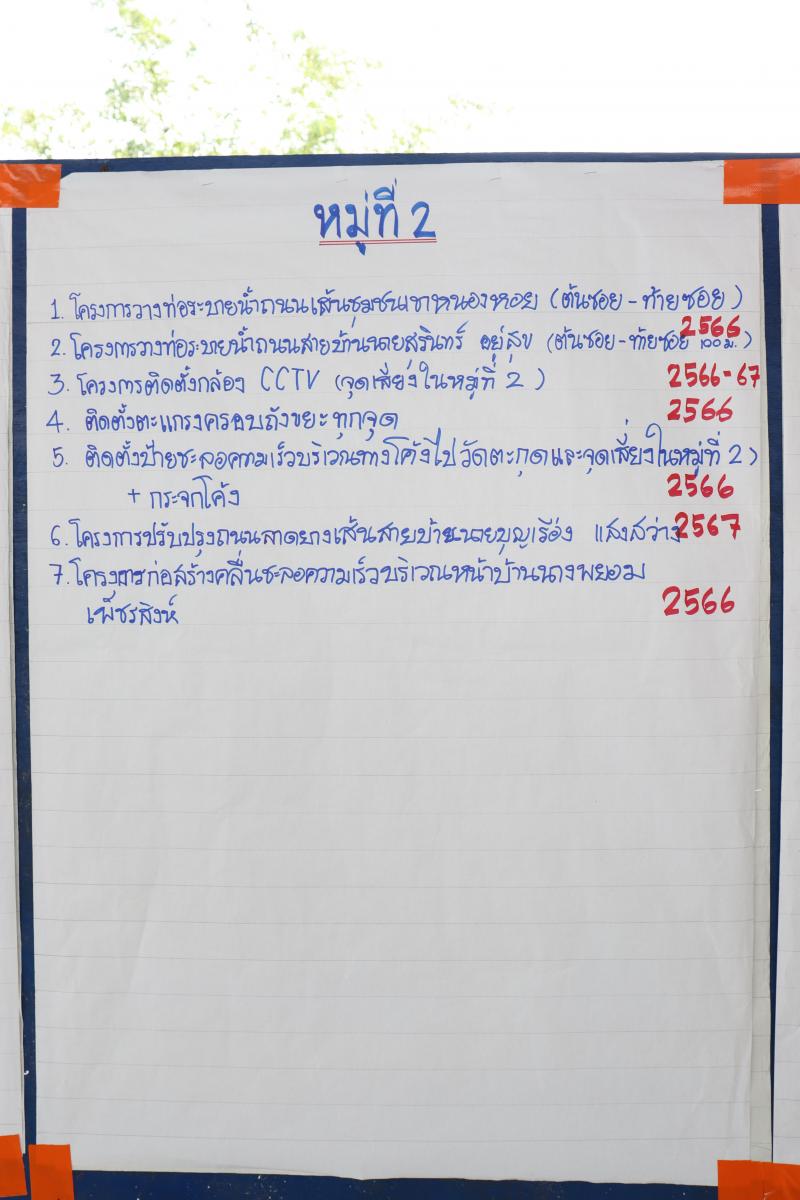 หมู่ที่ 2
1. โครงการวางท่อระบายน้ำถนนเส้นชุมชนเขาหนองหอย (ต้นซอย - ท้ายซอย)
2566
2. โครงการวางท่อระบายน้ำถนนสายบ้านนายสรินทร์ อยู่สุข (ต้นซอย - ท้ายซอย 100 ม.)
3. โครงการติดตั้งกล้อง CCTV (จุดเสี่ยงในหมู่ที่ 2) 2566-67
4. ติดตั้งตะแกรงครอบถังขยะทุกจุด 2566
5. ติดตั้งป้ายชะลอความเร็วบริเวณทางโค้งไปวัดตะกุดและจุดเสี่ยงในหมู่ที่ 2)
+ กระจกโค้ง 2566
6. โครงการปรับปรุงถนนลาดยางเส้นสายบ้านนายบุญเรือง แสงสว่าง 2567
7. โครงการก่อสร้างคลื่นชะลอความเร็วบริเวณหน้าบ้านนางพยอม
เพ็ชรสิงห์ 2566